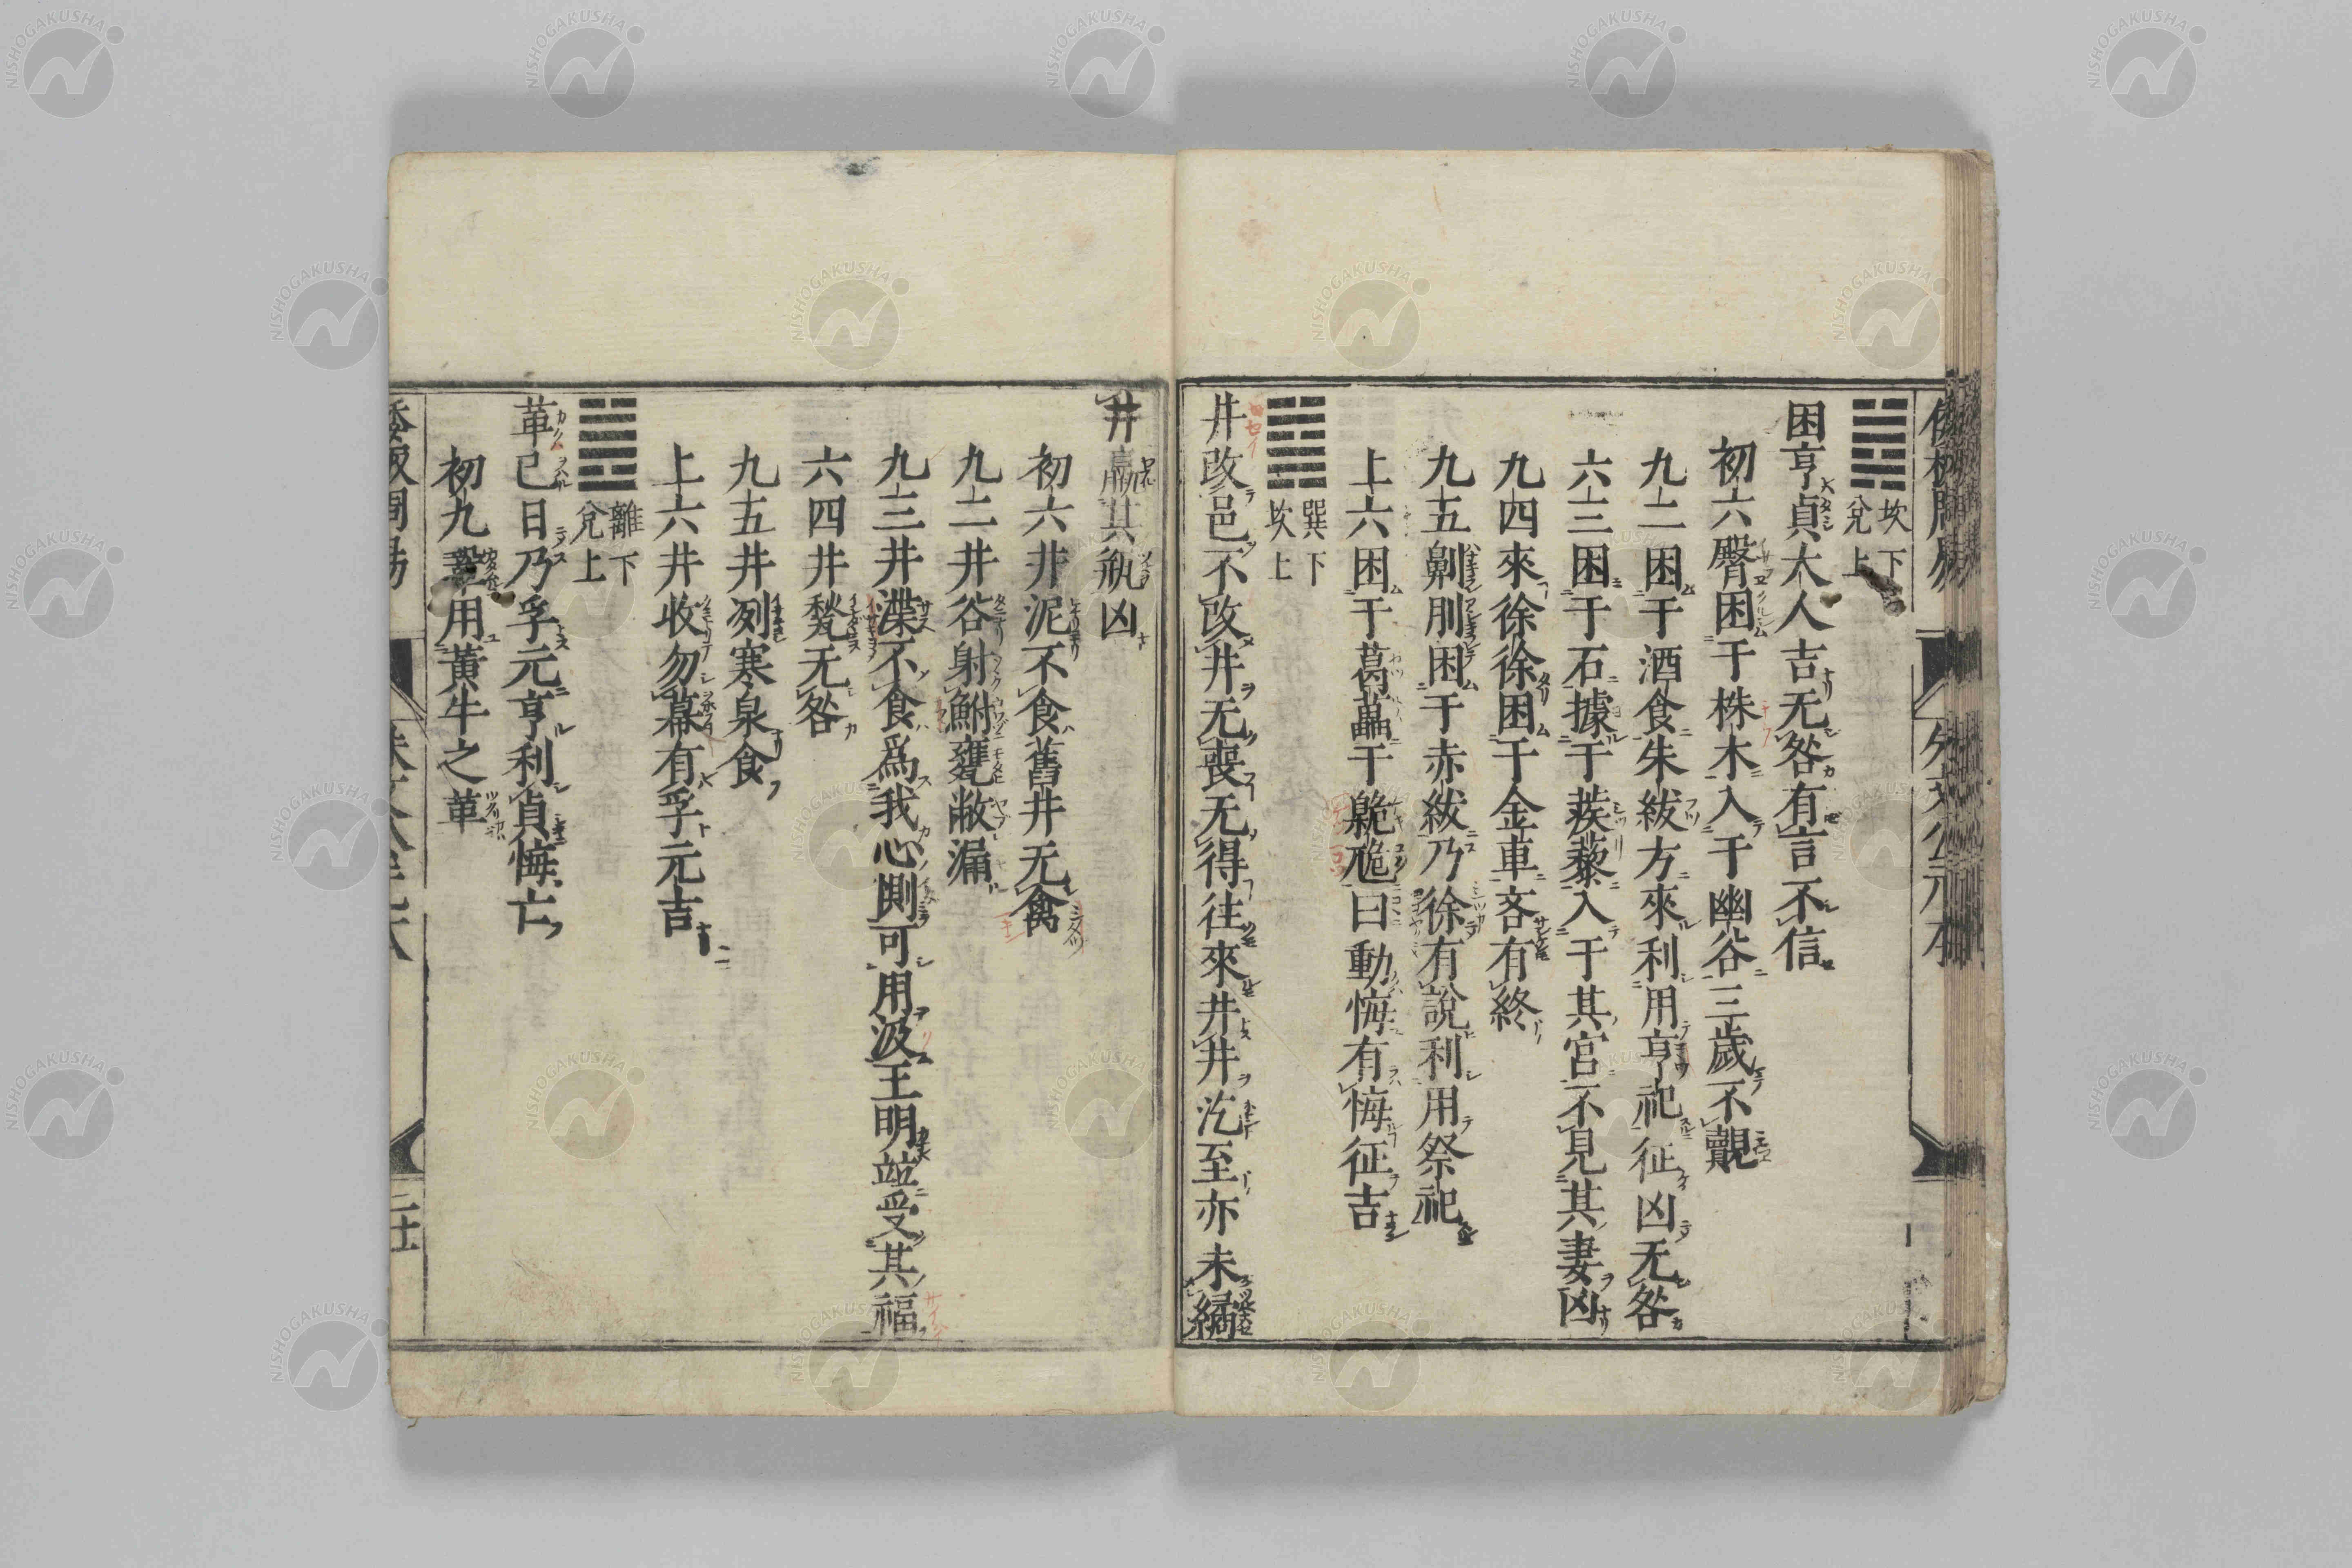 坎下
兌上
困亨貞大人吉无咎有言不信
初六臀困于株木入于幽谷三歲不覿
九二困于酒食朱紱方來利用亨祀征凶无咎
六三困于石據于蒺藜入于其宮不見其妻凶
九四來徐徐困于金車吝有終
九五劓刖困于赤紱乃徐有說利用祭祀
上六困于葛藟于臲卼曰動悔有悔征吉
巽下
坎上
井改邑不改井无喪无得往來井井汔至亦未繘
井羸其瓶凶
初六井泥不食舊井无禽
九二井谷射鮒甕敝漏
九三井渫不食爲我心惻可用汲王明並受其福
六四井甃无咎
九五井冽寒泉食
上六井收勿幕有孚元吉
離下
兌上
革已日乃孚元亨利貞悔亡
初九鞏用黃牛之革
NISHOGAKUSHA